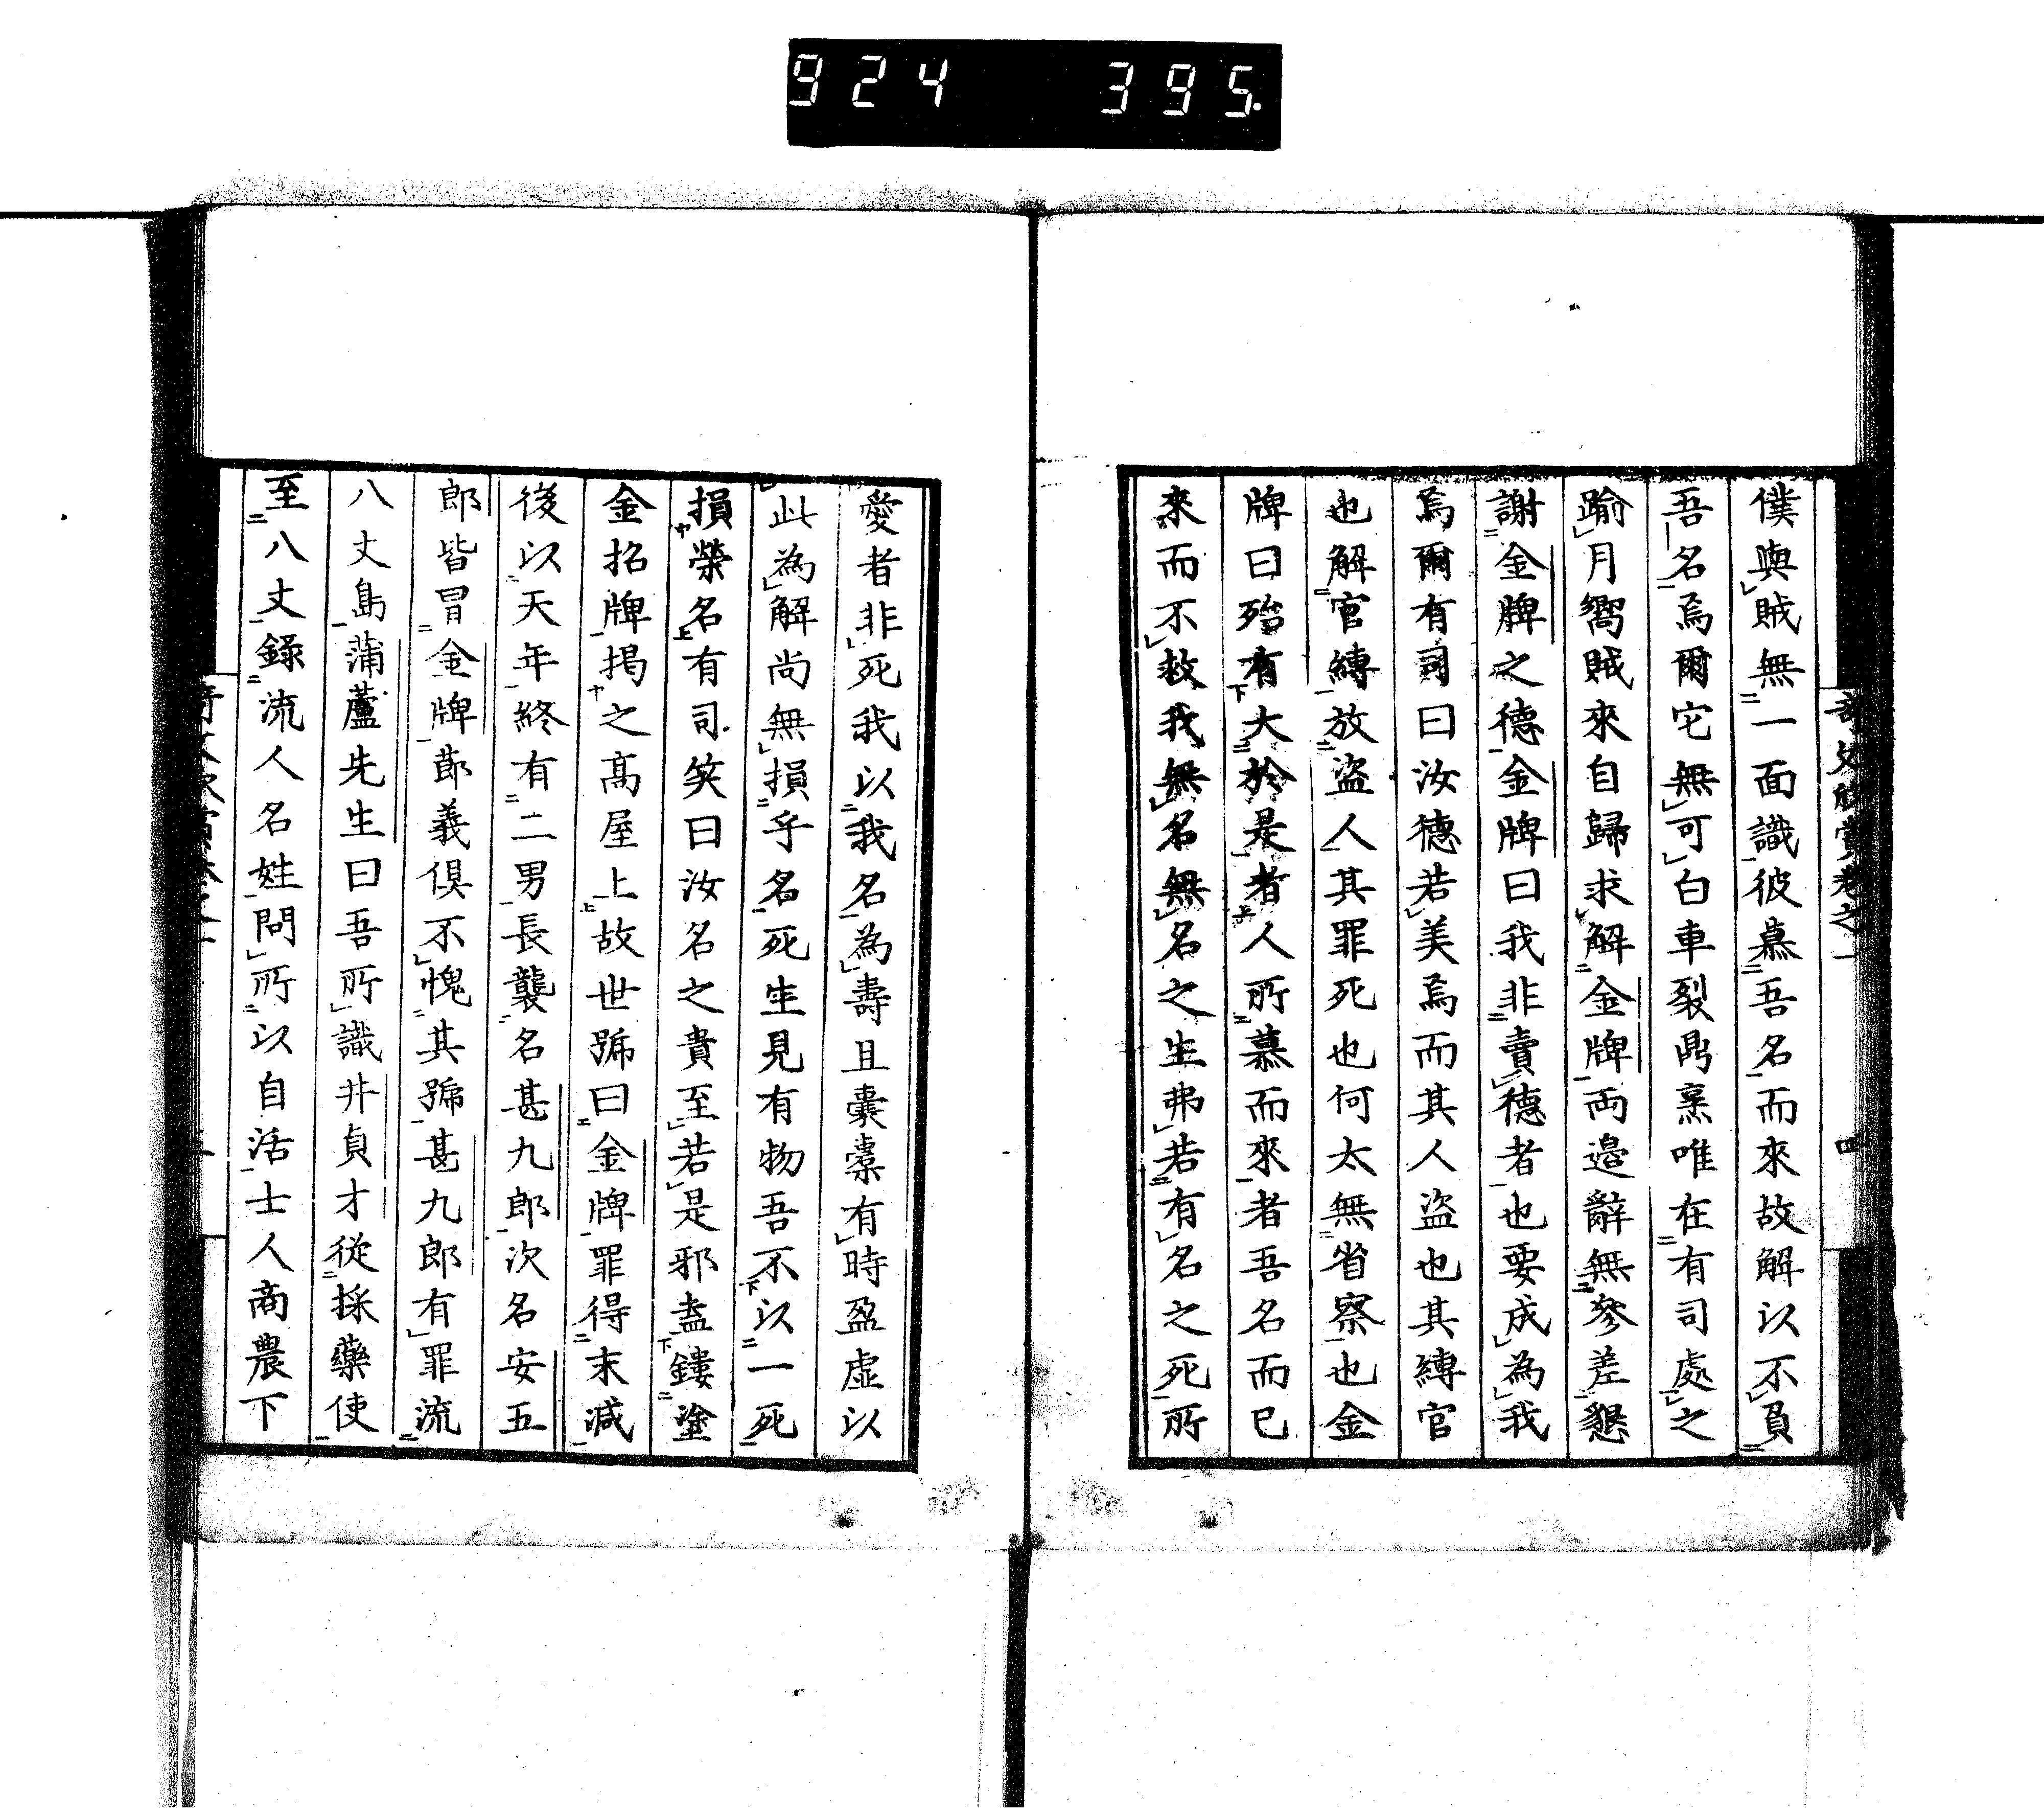 924 395.
僕與賊無一面識彼慕吾名而來故解以不負
吾名焉爾它無可白車裂鼎烹唯在有司處之
踰月嚮賊來自歸求解金牌両邉辭無參差懇
謝金牌之德金牌曰我非賣德者也要成為我
焉爾有司曰汝德若美焉而其人盜也其縛官
也解官縛放盜人其罪死也何太無省察也金
牌曰殆有大於是者人所慕而來者吾名而已
來而不救我無名無名之生弗若有名之死所
愛者非死我以我名為壽且囊橐有時盈虛以
此為解尚無損乎名死生見有物吾不以一死
損榮名有司笑曰汝名之貴至若是邪盍鏤塗
金招牌揭之髙屋上故世號曰金牌罪得末減
後以天年終有二男長襲名甚九郎次名安五
郎皆冒金牌節義俱不愧其號甚九郎有罪流
八丈島蒲蘆先生曰吾所識井貞才從採藥使
至八丈錄流人名姓問所以自活士人商農下